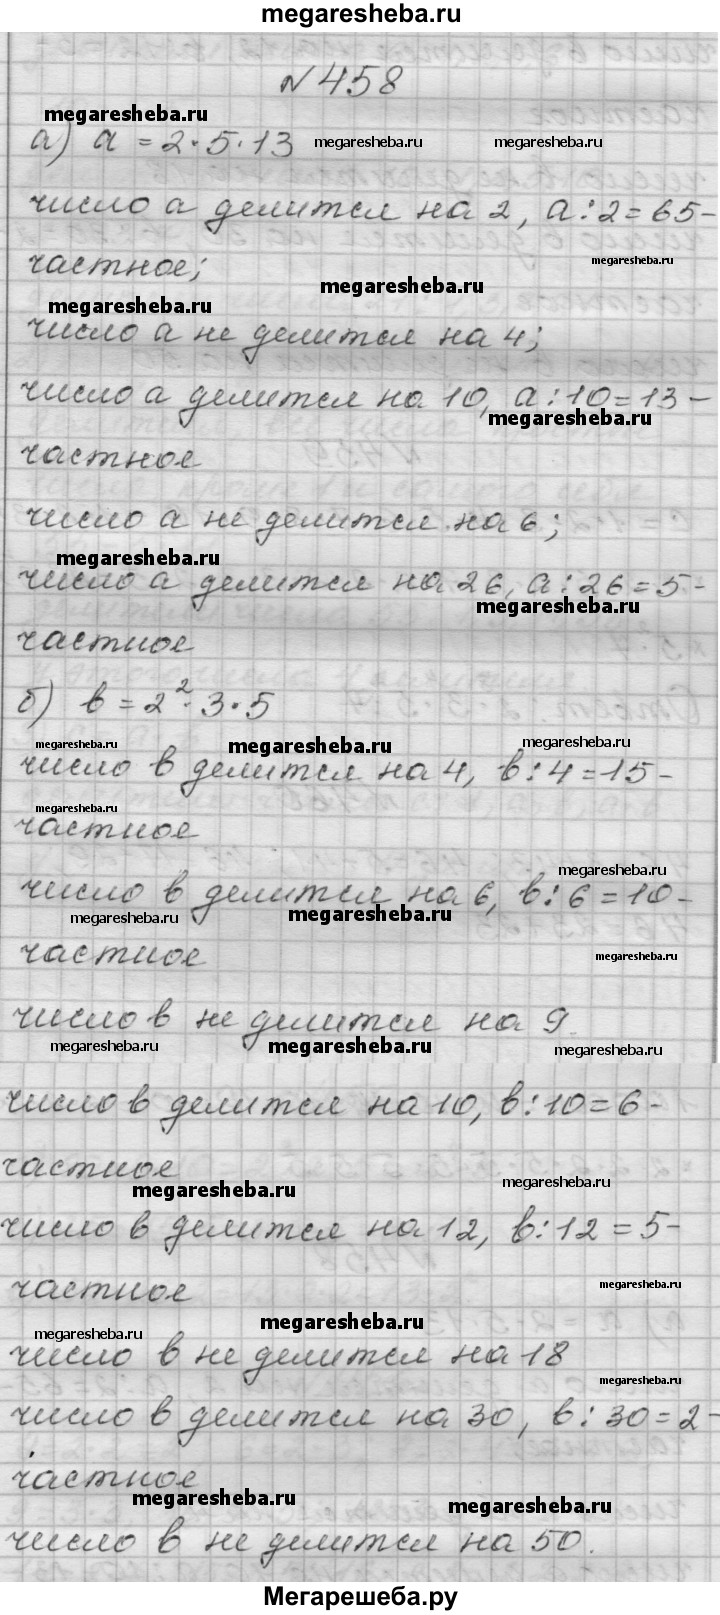 megaresheba.ru
№458
megaresheba.ru
а) a = 2·5·13
megaresheba.ru megaresheba.ru
число a делится на 2, a:2=65-
частное;
megaresheba.ru
megaresheba.ru
megaresheba.ru
число a не делится на 4;
число a делится на 10, a:10=13-
megaresheba.ru
частное
число a не делится на 6;
megaresheba.ru
число a делится на 26, a:26=5-
megaresheba.ru
частное
б) b = 2²·3·5
megaresheba.ru megaresheba.ru megaresheba.ru
число b делится на 4, b:4=15-
megaresheba.ru
частное
megaresheba.ru
число b делится на 6, b:6=10-
megaresheba.ru megaresheba.ru
частное
megaresheba.ru
число b не делится на 9.
megaresheba.ru megaresheba.ru megaresheba.ru
число b делится на 10, b:10=6-
частное
megaresheba.ru megaresheba.ru
число b делится на 12, b:12=5-
частное
megaresheba.ru
megaresheba.ru megaresheba.ru
число b не делится на 18
megaresheba.ru
число b делится на 30, b:30=2-
частное
megaresheba.ru megaresheba.ru
число b не делится на 50.
Мегарешеба.ру